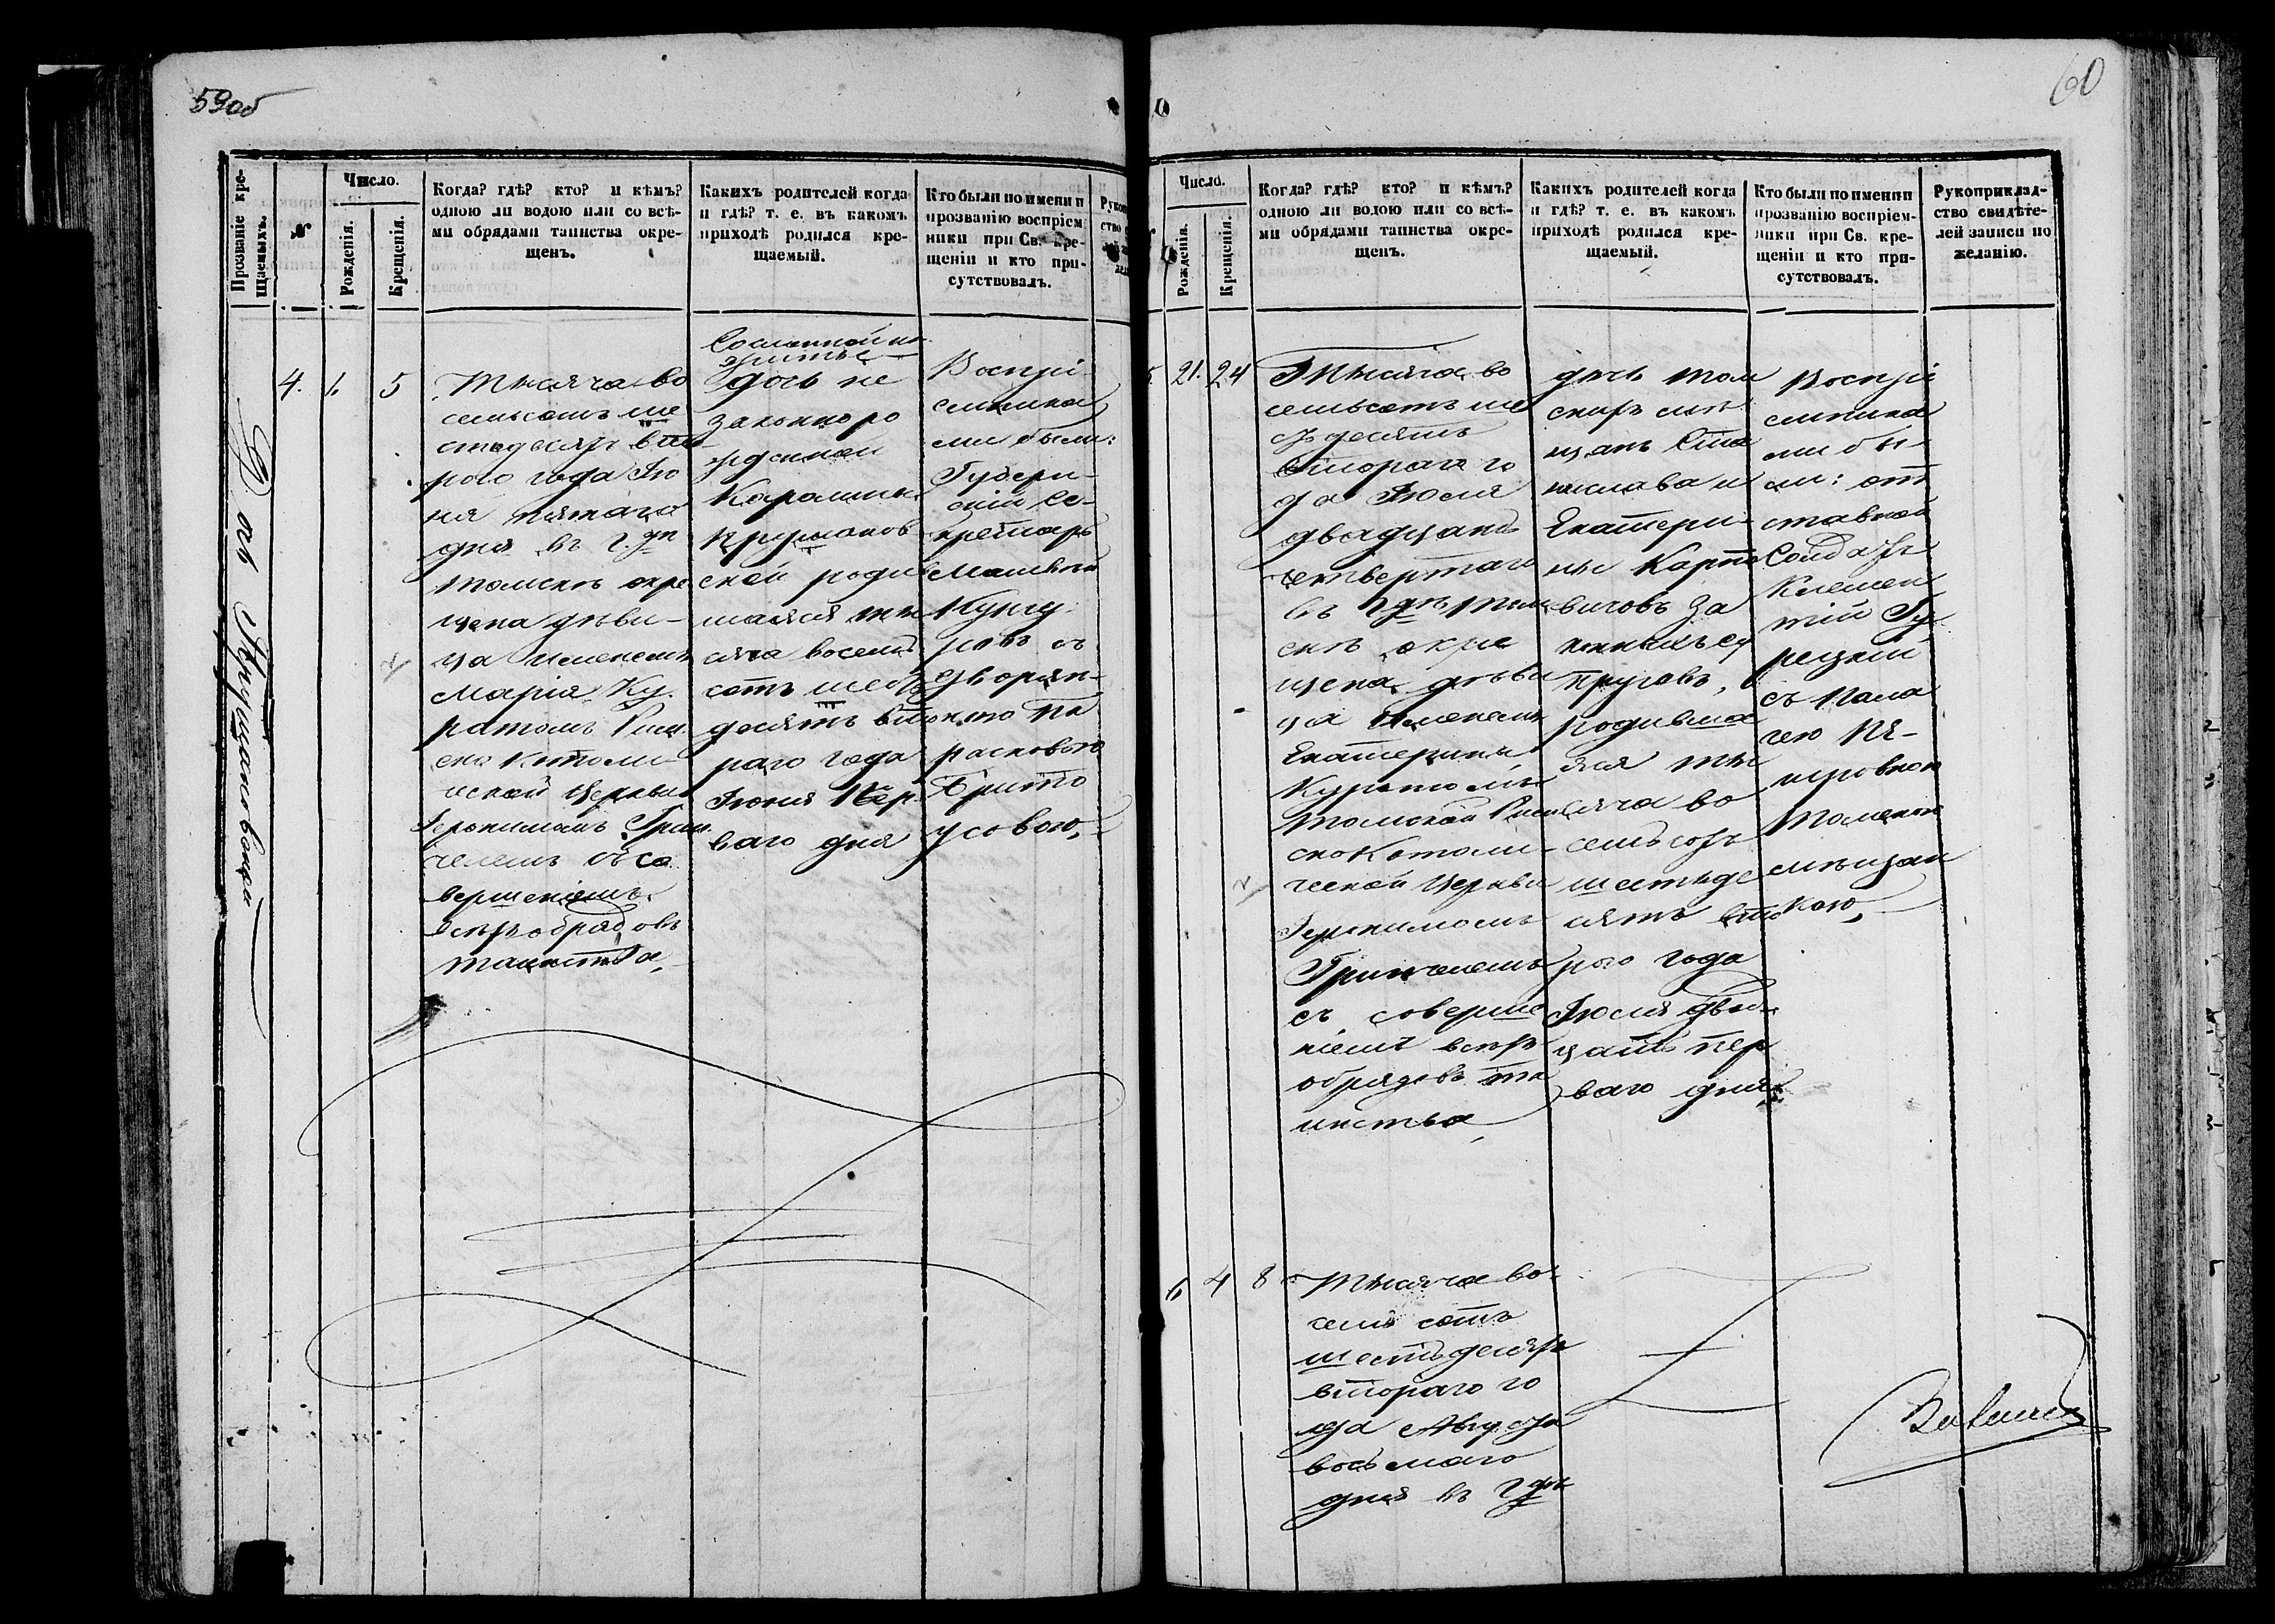 59об
Прозваніе кре-
щаемыхъ.
№
Число.
Рожденія.
Крещенія.
Когда? гдѣ? кто? и кѣмъ?
одною ли водою или со всѣ-
ми обрядами таинства окре-
щенъ.
Какихъ родителей когда
и гдѣ? т. е. въ какомъ
приходѣ родился кре-
щаемый.
Кто были по имени и
прозванію воспріем-
ники при Св. кре-
щеніи и кто при-
сутствовалъ.
4.
1.
5
Тысяча во
семьсотъ ше
стьдесятъ вто
рого года Iю
ня пятаго
дня въ г. дѣ
Томскѣ окре
щена дѣви-
ца именемъ
Марія Ку-
ратомъ Рим
ско Католи-
ческой Церкви
Iеронимомъ Грин
челемъ съ со
вершеніемъ
всѣхъ обрядовъ
таинства,
Сосланной на
житье
дочь не
законноро
жденной
Каролины
скои родив
шаяся ты
сяча восемь
сотъ шесть
десятъ вто
раго года
Iюня Пер-
ваго дня
Воспрі-
емника
ми были:
Губерн-
скій Се-
кретарь
Матвѣй
съ
дворян-
кою Па
расковьею
усовою,
60
Число.
Рожденія.
Крещенія.
Когда? гдѣ? кто? и кѣмъ?
одною ли водою или со всѣ-
ми обрядами таинства окре-
щенъ.
Какихъ родителей когда
и гдѣ? т. е. въ какомъ
приходѣ родился кре-
щаемый.
Кто были по имени и
прозванію воспріем-
ники при Св. кре-
щеніи и кто при-
сутствовалъ.
Рукоприклад-
ство свидѣте-
лей записи по
желанію.
21.
24
Тысяча во
семьсотъ ше
стьдесятъ
втораго го
да Iюля
двадцать
четвертаго
въ г дѣ Том
скѣ окре
щена дѣви
ца именемъ
Екатерина
Куратомъ
Томской Рим
ско Католи-
ческой Церкви
Iеронимомъ
Гринчелемъ
съ соверше
ніемъ всѣхъ
обрядовъ та
инства,
дочь Том
скихъ мѣ
щанъ Ста
нислава и
Екатери-
ны Карпо
вичовъ за
конныхъ су
пруговъ,
родивша
яся ты
сяча во
семьсотъ
шестьде
сятъ вто
рого года
Iюля два-
цать пер
ваго дня,
Воспріе
мника
ми бы-
ли: от
ставной
Солдатъ
Клемен
тій Гу
рецкій
съ Пела
гею Пе-
тровною
Томскою
мѣщан
кою,
6
4
8
Тысяча во-
семь сотъ
шестьдесятъ
втораго го
да Августа
восьмаго
дня въ г дѣ